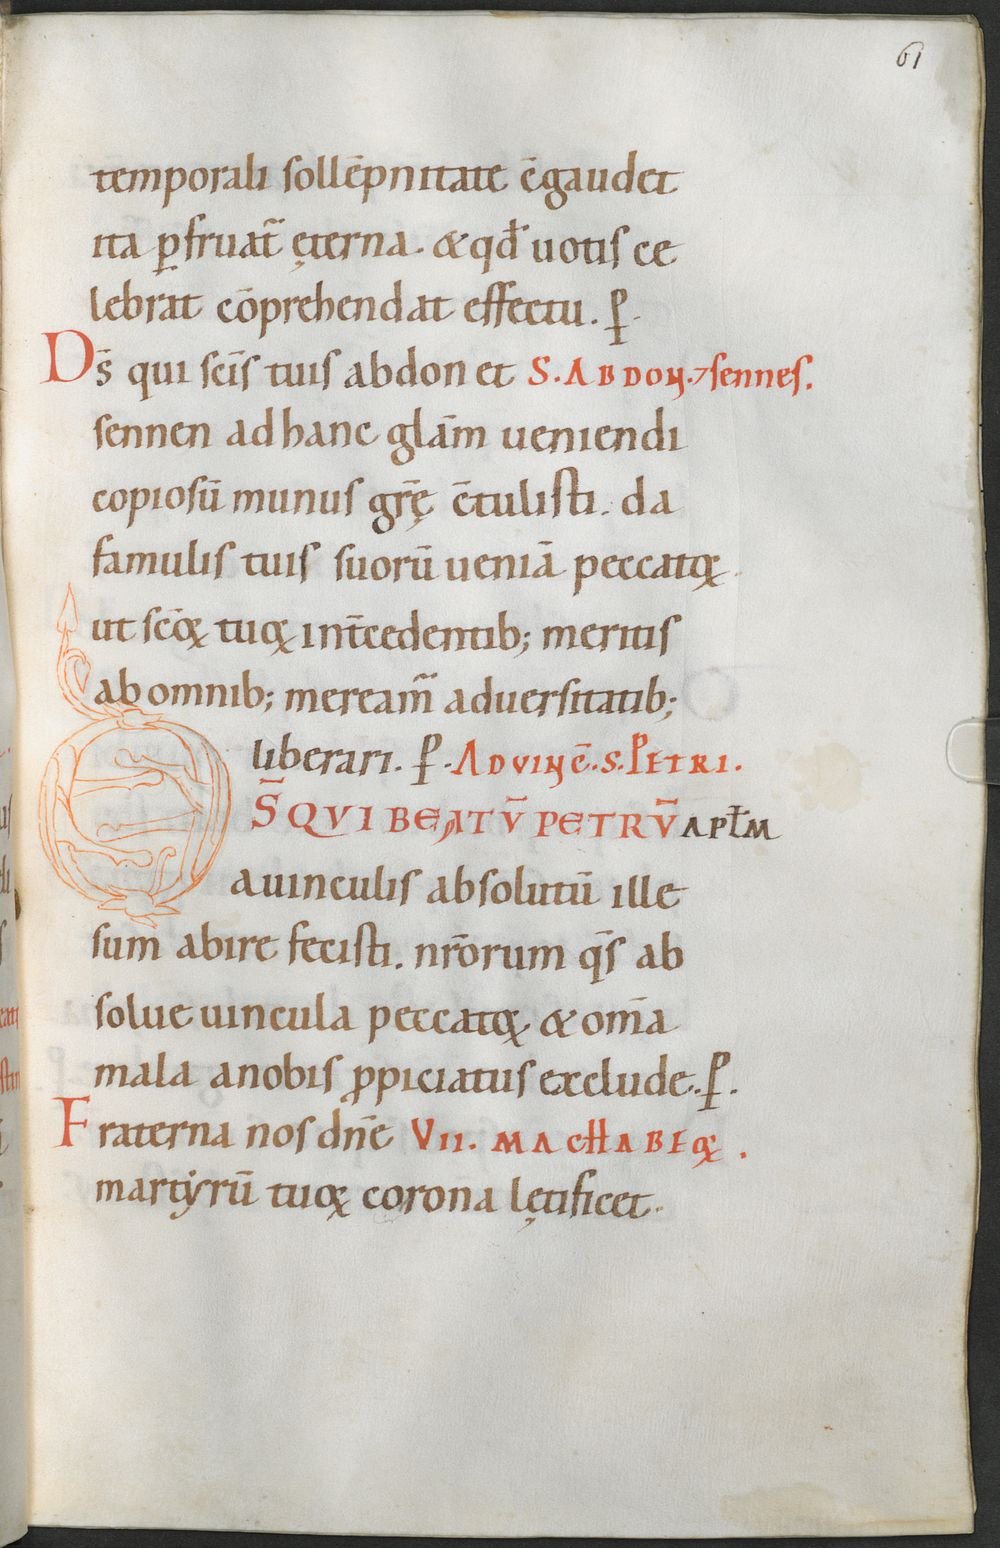 61
temporali sollēpnitate c̄gaudet
ita ꝑfruat̄ ęterna. & qđ uotis ce
lebrat cōprehendat effectu. P̱.
Ds̄ qui scīs tuis abdon et S. ABDON. ⁊ sennes.
sennen ad hanc glām ueniendi
copiosū munus grę̄ c̄tulisti. da
famulis tuis suorū ueniā peccatoꝝ.
ut scōꝝ tuoꝝ int̄cedentib; meritis
ab omnib; meream̄ aduersitatib;
liberari. P̱. AD VINC̄. S. PETRI.
DS̄ QVI BEATV̄ PETRV̄ APŁM
a uinculis absolutū ille
sum abire fecisti. nrōrum qs̄ ab
solue uincula peccatoꝝ & om̄a
mala a nobis ꝓpiciatus exclude. P̱.
Fraterna nos dnē VII. MACHABEOꝝ.
martyrū tuoꝝ corona lętificet.